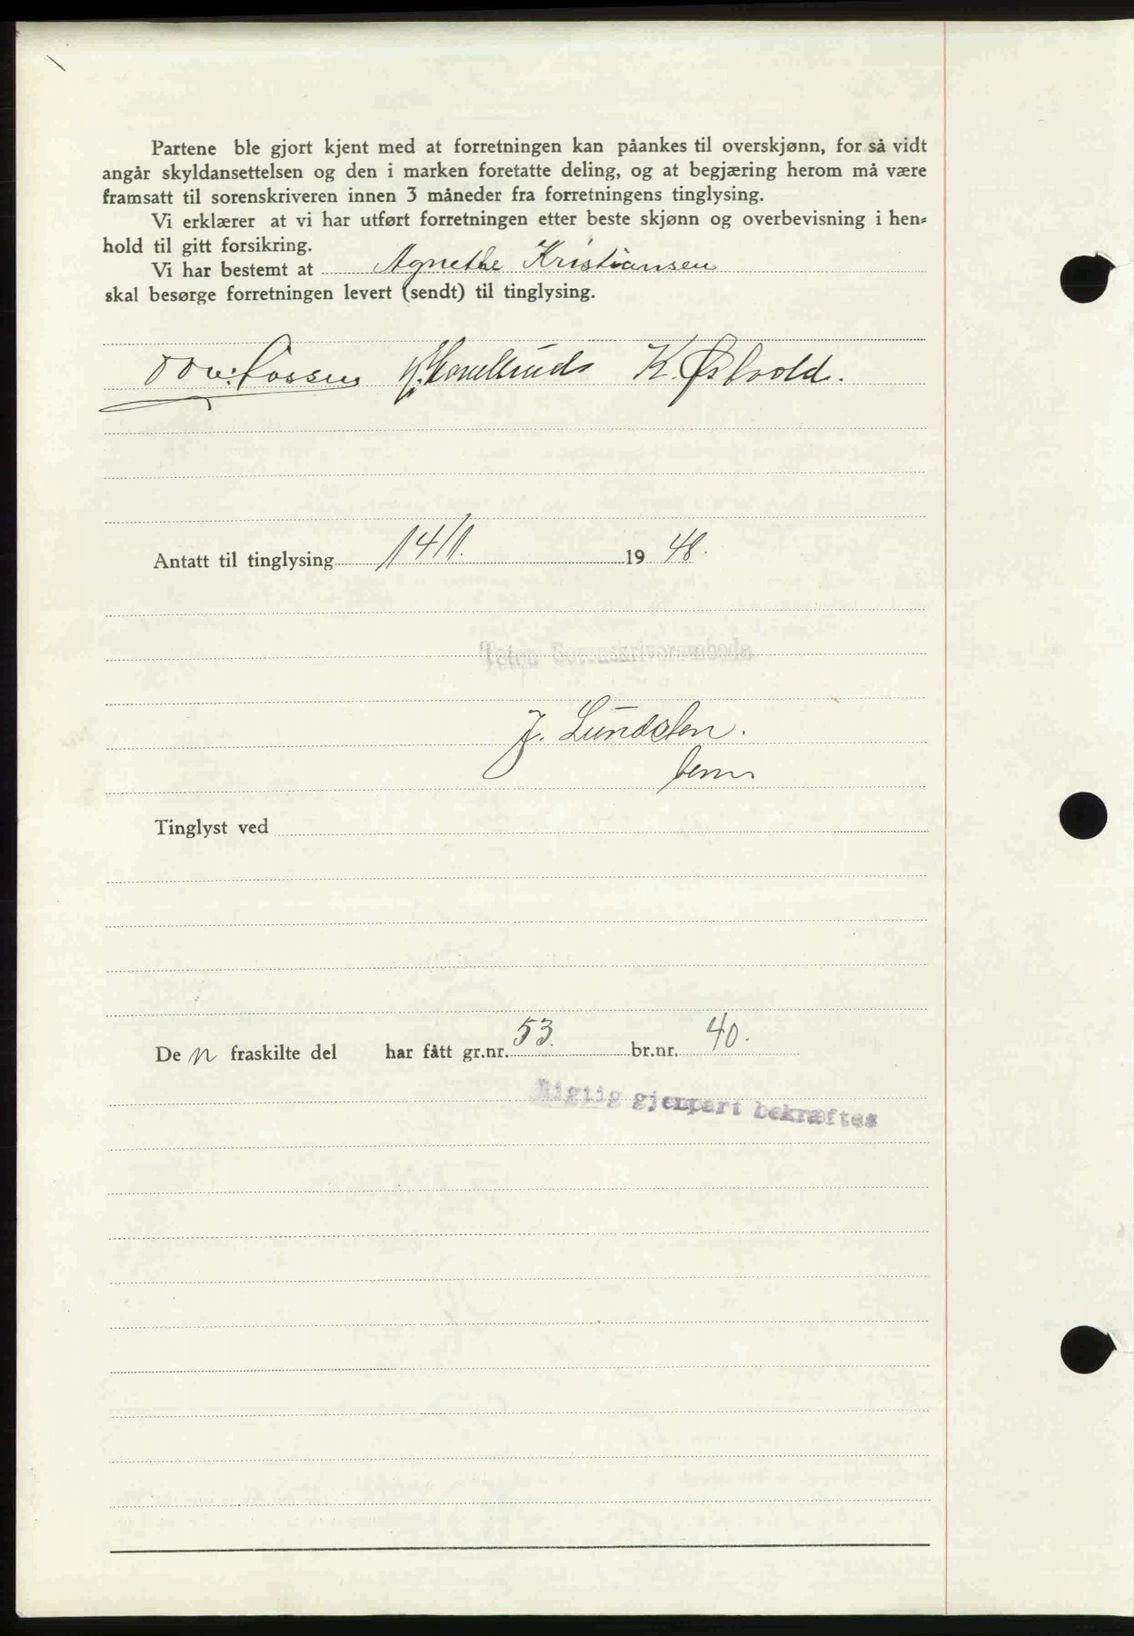 Partene ble gjort kjent med at forretningen kan påankes til overskjønn, for så vidt
angår skyldansettelsen og den i marken foretatte deling, og at begjæring herom må være
framsatt til sorenskriveren innen 3 måneder fra forretningens tinglysing.
Vi erklærer at vi har utført forretningen etter beste skjønn og overbevisning i hen=
hold til gitt forsikring.
Vi har bestemt at Agnethe Kristiansen
skal besørge forretningen levert (sendt) til tinglysing.
K. Østvold.
Antatt til tinglysing 14/1. 1948.
Toten Sorenskriverembede
J. Lundsten.
Tinglyst ved
De n fraskilte del har fått gr.nr. 53. br.nr. 40.
Rigtig gjenpart bekræftes